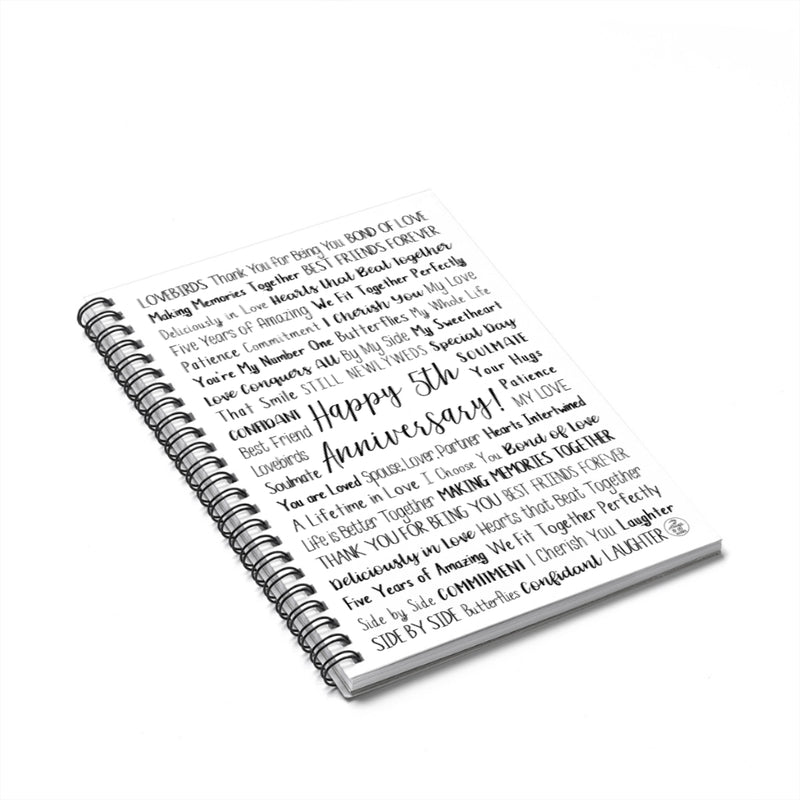 LOVEBIRDS Thank You for Being You BOND OF LOVE
Making Memories Together BEST FRIENDS FOREVER
Deliciously in Love Hearts that Beat Together
Five Years of Amazing We Fit Together Perfectly
Patience Commitment I Cherish You My Love
You're My Number One Butterflies My Whole Life
Love Conquers All By My Side My Sweetheart
That Smile STILL NEWLYWEDS Special Day
CONFIDANT Happy 5th SOULMATE
Best Friend Anniversary! Your Hugs
Lovebirds Patience
Soulmate MY LOVE
You are Loved Spouse Lover Partner Hearts Intertwined
A Lifetime in Love I Choose You Bond of love
Life is Better Together MAKING MEMORIES TOGETHER
THANK YOU FOR BEING YOU BEST FRIENDS FOREVER
Deliciously in Love Hearts that Beat Together
Five Years of Amazing We Fit Together Perfectly
Side by Side COMMITMENT I Cherish You Laughter
SIDE BY SIDE Butterflies Confidant LAUGHTER